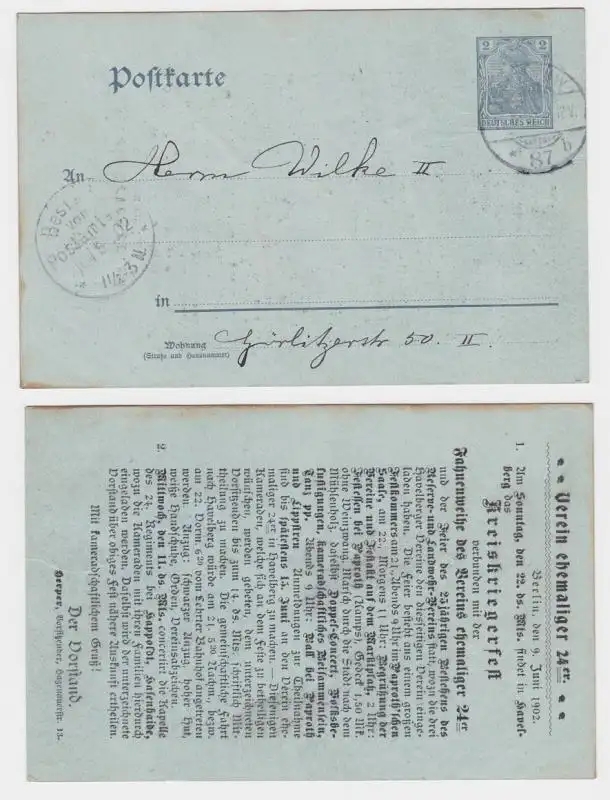 Postkarte
2
DEUTSCHES REICH
An Herrn Wilke II
Best.
vom
Postamt
02
11½-3 N
87 b
in
Wohnung
(Straße und Hausnummer)
Görlitzerstr 50. II.
Verein ehemaliger 24er.
Berlin, den 9. Juni 1902.
1. Am Sonntag, den 22. ds. Mts. findet in Havel-
berg das
Kreiskriegerfest
verbunden mit der
Fahnenweihe des Vereins ehemaliger 24er
und der Feier des 25jährigen Bestehens des
Reserve- und Landwehr-Vereins statt, wozu die drei
Havelberger Vereine den diesseitigen Verein einge-
laden haben. Die Feier besteht aus einem großen
Festkommers am 21. Abends 9 Uhr im Paproth'schen
Saale, am 22. Morgens 11 Uhr: Begrüßung der
Vereine und Festakt auf dem Marktplatz, 2 Uhr:
Festessen bei Paproth (Kamps) Gedeck 1,50 Mk.
ohne Weinzwang, Marsch durch die Stadt nach dem
Mühlenholz, daselbst Doppel-Concert, Volksbe-
lustigungen, kameradschaftliches Beisammensein,
Tanz pp. Abends 9 Uhr: Ball bei Paproth
und Eppüren. Anmeldungen zur Theilnahme
sind bis spätestens 14. Juni an den Verein ehe-
maliger 24er in Havelberg zu machen. — Diejenigen
Kameraden, welche sich an dem Feste zu betheiligen
wünschen, werden gebeten, dem unterzeichneten
Vorsitzenden bis zum 14. ds. Mts. schriftlich Mit-
theilung zu machen. Die gemeinschaftliche Fahrt
nach Havelberg werde am 21. 5 20 Nachm. bezw.
am 22. Vorm. 6 20 vom Lehrter Bahnhof angetreten
werden. Anzug: schwarzer Anzug, hoher Hut,
weiße Handschuhe, Orden, Vereinsabzeichen.
2. Mittwoch, den 11. ds. Mts. concertirt die Kapelle
des 24. Regiments bei Happoldt, Hasenhaide,
wozu die Kameraden mit ihren Familien hierdurch
eingeladen werden. Daselbst wird der unterzeichnete
Vorstand über obiges Fest nähere Auskunft ertheilen.
Mit kameradschaftlichem Gruß!
Der Vorstand.